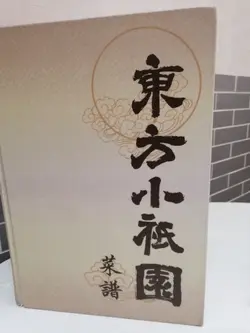 東方小祇園
菜譜